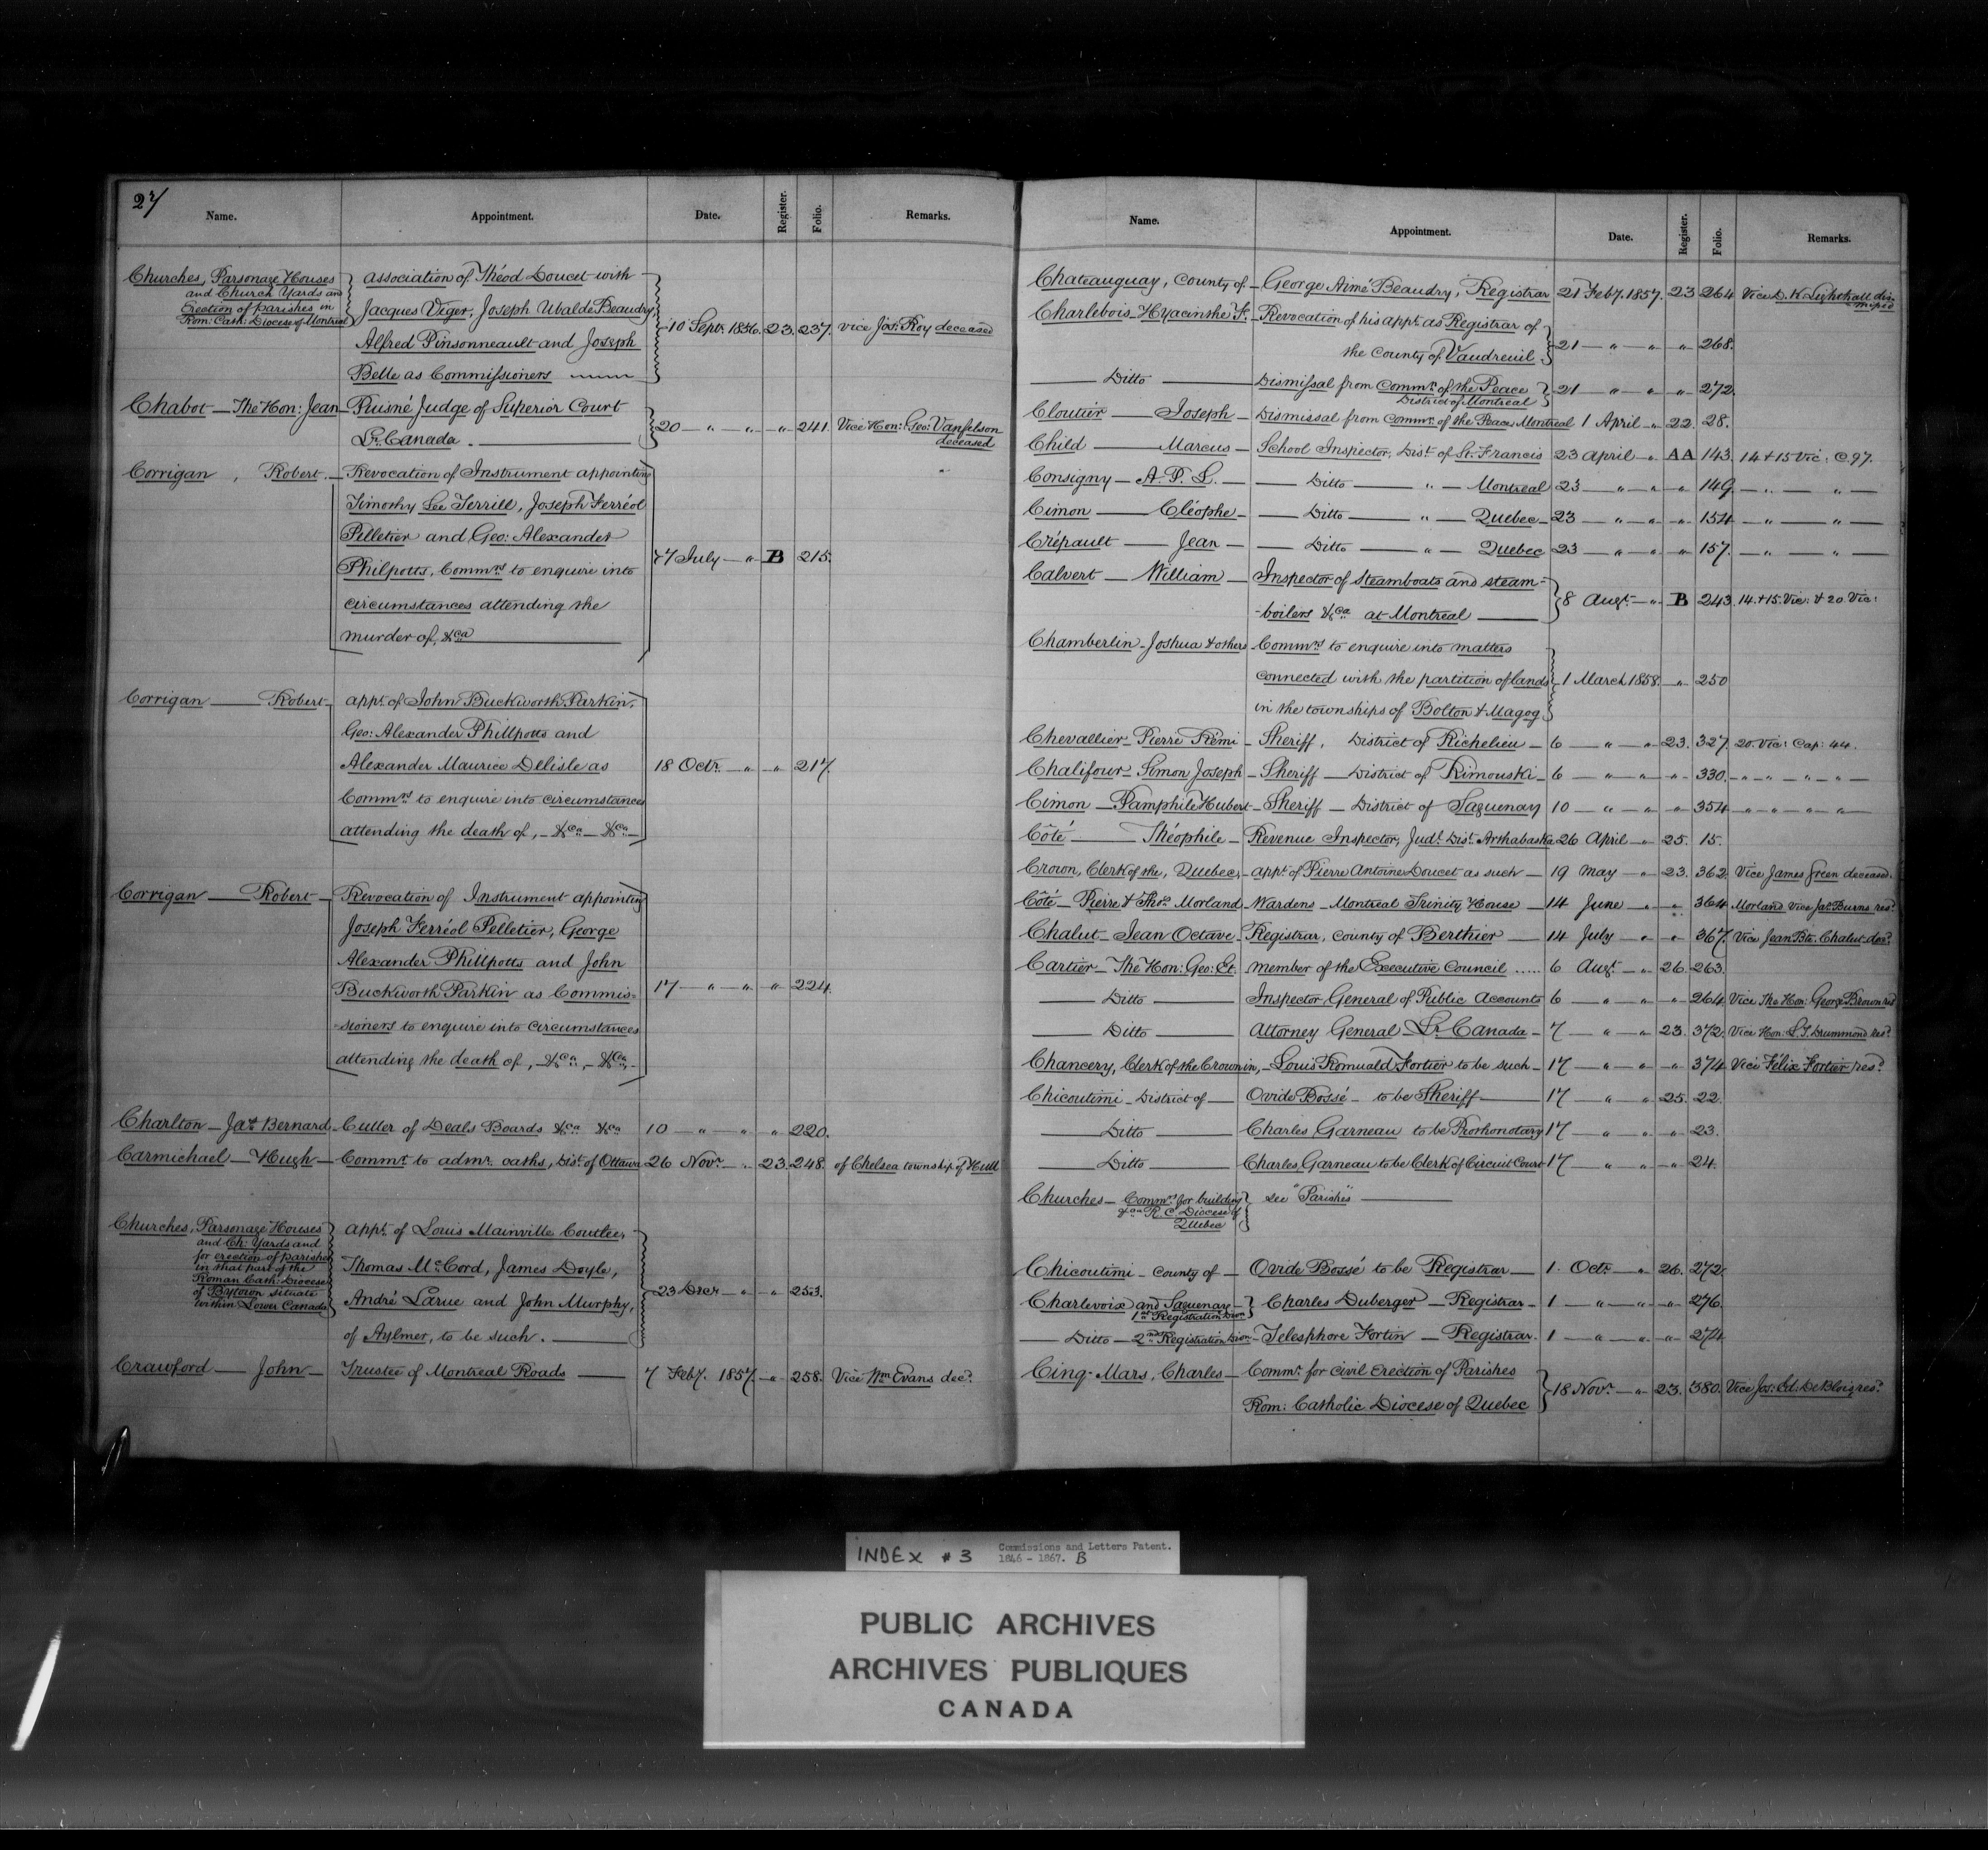 27
Name. Appointment. Date. Register. Folio. Remarks.
Churches, Parsonage Houses and Church Yards and Erection of parishes in Rom: Cath: Diocese of Montreal
Association of Théod Doucet with
Jacques Viger, Joseph Ubalde Beaudry,
Alfred Pinsonneault and Joseph
Belle as Commissioners
10 Sept. 1856. 23. 237. Vice Jos: Roy deceased
Chabot — The Hon: Jean — Puisné Judge of Superior Court
Lr. Canada. 20 — " — " — " 241. Vice Hon: Geo: Vanfelson
deceased
Corrigan, Robert — Revocation of Instrument appointing
Timothy Lee Terrill, Joseph Ferréol
Pelletier and Geo: Alexander
Philpotts, Commrs to enquire into
circumstances attending the
murder of, &ca
7 July — " B 215.
Corrigan — Robert — appt. of John Buckworth Parkin,
Geo: Alexander Phillpotts and
Alexander Maurice Delisle as
Commrs to enquire into circumstances
attending the death of, — &ca — &ca
18 Octr. — " — " 217.
Corrigan — Robert — Revocation of Instrument appointing
Joseph Ferréol Pelletier, George
Alexander Phillpotts and John
Buckworth Parkin as Commis-
-sioners to enquire into circumstances
attending the death of, — &ca, — &ca, —
17 — " — " " 224.
Charlton — Jas. Bernard — Culler of Deals Boards &ca &ca 10 — " — " " 220.
Carmichael — Hugh — Commr. to admr. oaths, Dist. of Ottawa 26 Novr. — " 23. 248. of Chelsea township of Hull
Churches, Parsonage Houses
and Ch: Yards and
for erection of parishes
in that part of the
Roman Cath: Diocese
of Bytown situate
within Lower Canada
appt. of Louis Mainville Coutlee,
Thomas McCord, James Doyle,
André Larue and John Murphy,
of Aylmer, to be such.
23 Decr — " — " 253.
Crawford — John — Trustee of Montreal Roads — 7 Feby. 1857. " 258. Vice Wm Evans decd.
Name. Appointment. Date. Register. Folio. Remarks.
Chateauguay, County of — George Aimé Beaudry, Registrar 21 Feby. 1857. 23 264 Vice D. K. Lighthall dis-
missed
Charlebois — Hyacinthe F. — Revocation of his appt. as Registrar of
the County of Vaudreuil 21 — " — " " 268.
Ditto — Dismissal from Commn. of the Peace
District of Montreal 21 " — " " 272.
Cloutier — Joseph — Dismissal from Commn. of the Peace, Montreal 1 April — " 22. 28.
Child — Marcus — School Inspector, Dist. of St. Francis 23 April — " AA 143. 14 & 15 Vic: C. 97.
Consigny — A. P. L. — Ditto — " — Montreal 23 — " — " " 149. — " — " —
Cimon — Cléophe — Ditto — " — Quebec — 23 — " — " " 154 — " — " —
Crépault — Jean — Ditto — " — Quebec 23 — " — " " 157. — " — " —
Calvert — William — Inspector of Steamboats and steam-
-boilers &ca at Montreal 8 Augt. — " B 243. 14. & 15. Vic: & 20. Vic:
Chamberlin — Joshua & others — Commrs to enquire into matters
connected with the partition of lands
in the townships of Bolton & Magog
1 March 1858. — " 250
Chevallier — Pierre Rémi — Sheriff, District of Richelieu — 6 — " — " 23. 327. 20. Vic: Cap: 44.
Chalifour — Simon Joseph — Sheriff — District of Rimouski — 6 — " — " " 330. — " — " — " — " —
Cimon — Pamphile Hubert — Sheriff — District of Saguenay 10 — " — " " 354 — " — " — " — " —
Côté — Théophile — Revenue Inspector, Judl. Dist. Arthabaska 26 April — " 25. 15.
Crown, Clerk of the, Quebec, — appt. of Pierre Antoine Doucet as such — 19 May — " 23. 362. Vice James Green deceased.
Côté — Pierre & Thos. Morland — Wardens — Montreal Trinity House — 14 June — " " 364 Morland Vice Jas. Burns resd.
Chalut — Jean Octave — Registrar, County of Berthier — 14 July — " " 367. Vice Jean Bte. Chalut decd.
Cartier — The Hon: Geo: Et. Member of the Executive Council ..... 6 Augt. — " 26. 263.
Ditto — Inspector General of Public Accounts 6 — " — " " 264. Vice The Hon: George Brown resd
Ditto — Attorney General Lr. Canada — 7 — " — " 23. 372. Vice Hon: L. T. Drummond resd.
Chancery, Clerk of the Crown in, — Louis Romuald Fortier to be such — 17 — " — " " 374 Vice Félix Fortier resd.
Chicoutimi — District of — Ovide Bossé — to be Sheriff — 17 — " " 25. 22.
Ditto — Charles Garneau to be Prothonotary 17 — " — " " 23.
Ditto — Charles Garneau to be Clerk of Circuit Court 17 — " — " " 24.
Churches — Commrs. for building
&ca R. C. Diocese of
Quebec
see "Parishes"
Chicoutimi — County of — Ovide Bossé to be Registrar — 1. Octr. — " 26. 272.
Charlevoix and Saguenay —
1st Registration Divn. Charles Duberger — Registrar — 1 — " — " " 276.
Ditto — 2nd Registration Divn. — Telesphore Fortin — Registrar. 1 — " — " " 274
Cinq-Mars, Charles — Commr. for civil Erection of Parishes
Rom: Catholic Diocese of Quebec 18 Novr. — " 23. 380. Vice Jos: Ed: DeBlois resd.
INDEX # 3 Commissions and Letters Patent.
1846 - 1867. B
PUBLIC ARCHIVES
ARCHIVES PUBLIQUES
CANADA